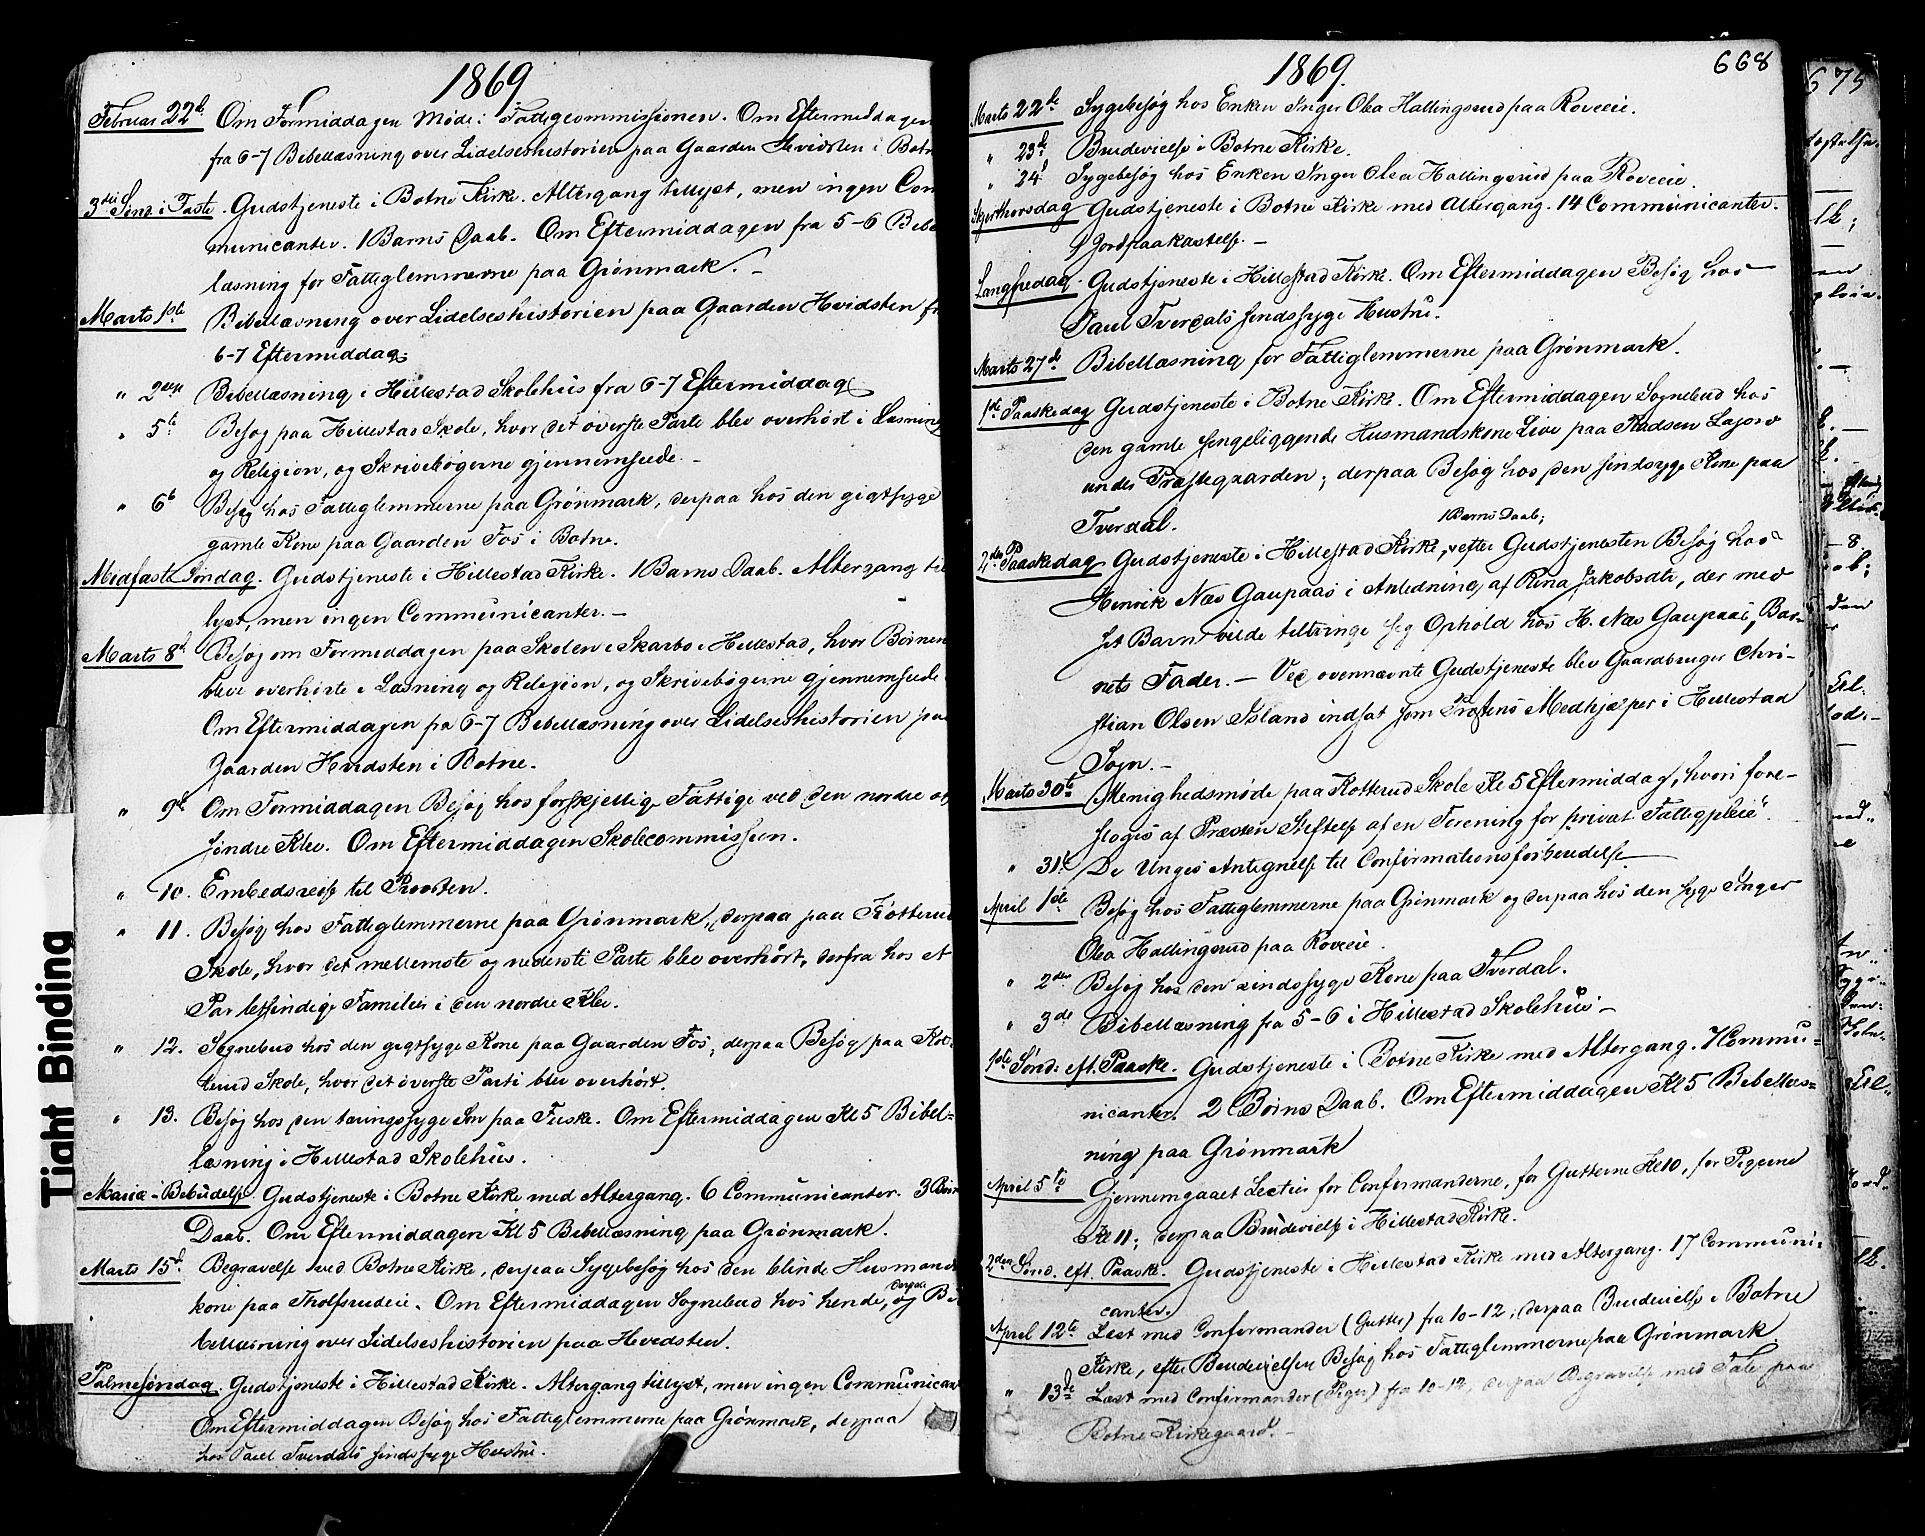 1869
Februar 22d Om Formiddagen Møde i Fattigcommissionen. Om Eftermiddagen
fra 6-7 Bibellæsning over Lidelseshistorien paa Gaarden Hvidsten i Botne
3die Sønd. i Faste. Gudstjeneste i Botne Kirke. Altergang tillyst, men ingen Com
municanter. 1 Barns Daab. Om Eftermiddagen fra 5-6 Bibel
læsning for Fattiglemmerne paa Grønmark. -
Marts 1ste Bibellæsning over Lidelseshistorien paa Gaarden Hvidsten fr
6-7 Eftermiddag.
" 2den Bibellæsning i Hillestad Skolehus fra 6-7 Eftermiddag
" 5te Besøg paa Hillestad Skole, hvor det øverste Parti blev overhørt i Læsning
og Religion, og Skrivebøgerne gjennemseede. -
" 6te Besøg hos Fattiglemmerne paa Grønmark, derpaa hos den gigtsyge
gamle Kone paa Gaarden Fos i Botne.
Midfaste Søndag. Gudstjeneste i Hillestad Kirke. 1 Barns Daab. Altergang til
lyst, men ingen Communicanter. -
Marts 8d Besøg om Formiddagen paa Skolen i Skarbo i Hillestad, hvor Børnene
bleve overhørte i Læsning og Religion, og Skrivebøgerne gjennemseede
Om Eftermiddagen fra 6-7 Bibellæsning over Lidelseshistorien paa
Gaarden Hvidsten i Botne.
" 9de Om Formiddagen Besøg hos forskjellige Fattige ved den nordre og
søndre Klev. Om Eftermiddagen Skolecommission.
" 10. Embedsreise til Provsten.
" 11. Besøg hos Fattiglemmerne paa Grønmark, derpaa paa Kotterud
Skole, hvor det mellemste og nederste Parti blev overhørt, derfra hos et
Par letsindige Familier i den nordre Klev.
" 12. Sognebud hos den gigtsyge Kone paa Gaarden Fos, derpaa Besøg paa Kot-
terud Skole, hvor det øverste Parti blev overhørt.
" 13. Besøg hos den tæringssyge Søn paa Fuske. Om Eftermiddagen Kl 5 Bibel=
læsning i Hillestad Skolehus.
Mariæ-Bebudelse. Gudstjeneste i Botne Kirke med Altergang. 6 Communicanter. 3 Børns
Daab. Om Eftermiddagen Kl 5 Bibellæsning paa Grønmark.
Marts 15d. Begravelse ved Botne Kirke, derpaa Sygebesøg hos den blinde Husmands
kone paa Tholfsrudeie. Om Eftermiddagen Sognebud hos hende, derpaa og Bi
bellæsning over Lidelseshistorien paa Hvidsten.
Palmesøndag. Gudstjeneste i Hillestad Kirke. Altergang tillyst, men ingen Communican
Om Eftermiddagen Besøg hos Fattiglemmerne paa Grønmark, derpaa
hos Paul Tverdals sindssyge Hustru.
1869. 668
Marts 22de Sygebesøg hos Enken Inger Olea Hallingsrud paa Roveeie.
" 23de Brudevielse i Botne Kirke.
" 24d Sygebesøg hos Enken Inger Olea Hallingsrud paa Roveeie.
Skjerthorsdag Gudstjeneste i Botne Kirke med Altergang. 14 Communicanter.
1 Jordpaakastelse. -
Langfredag. Gudstjeneste i Hillestad Kirke. Om Eftermiddagen Besøg hos
Paul Tverdals sindssyge Hustru.
Marts 27de Bibellæsning for Fattiglemmerne paa Grønmark.
1ste Paaskedag Gudstjeneste i Botne Kirke. Om Eftermiddagen Sognebud hos
den gamle sengeliggende Husmandskone Live paa
under Præstegaarden; derpaa Besøg hos den sindssyge Kone paa
Tverdal.
1 Barns Daab;
2den Paaskedag Gudstjeneste i Hillestad Kirke, efter Gudstjenesten Besøg hos
Henrik Næs Gaupaas i Anledning af Rina Jakobsdtr, der med
sit Barn vilde tiltvinge sig Ophold hos H. Næs Gaupaas, Bar-
nets Fader. - Ved ovennævnte Gudstjeneste blev Gaardbruger Chri-
stian Olsen Island indsat som Præstens Medhjælper i Hillestad
Sogn. -
Marts 30te Menighedsmøde paa Kotterud Skole Kl 5 Eftermiddag, hvori fore-
sloges af Præsten Stiftelse af en Forening for "privat Fattigpleie".
" 31te De Unges Antegnelse til Confirmationsforberedelse
April 1ste Besøg hos Fattiglemmerne paa Grønmark og derpaa hos den syge Inger
Olea Hallingsrud paa Roveeie.
" 2den Besøg hos den sindssyge Kone paa Tverdal.
" 3de Bibellæsning fra 5-6 i Hillestad Skolehus -
1ste Sønd. eft. Paaske. Gudstjeneste i Botne Kirke med Altergang. 4 Commu-
nicanter. 2 Børns Daab. Om Eftermiddagen Kl 5 Bibellæs=
ning paa Grønmark
April 5te Gjennemgaaet Lectier for Confirmanderne, for Gutterne Kl 10, for Pigerne
Kl 11; derpaa Brudevielse i Hillestad Kirke.
2den Sønd. eft. Paaske. Gudstjeneste i Hillestad Kirke med Altergang. 17 Communi-
canter.
April 12te Læst med Confirmander (Gutter) fra 10-12; derpaa Brudevielse i Botne
Kirke, efter Brudevielsen Besøg hos Fattiglemmerne paa Grønmark.
" 13de Læst med Confirmander (Piger) fra 10-12, derpaa Begravelse med Tale paa
Botne Kirkegaard. -
675
Tight Binding